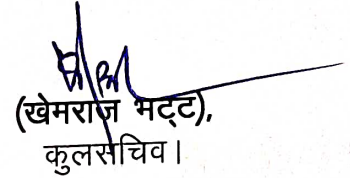 (खेमराज भट्ट),
कुलसचिव।